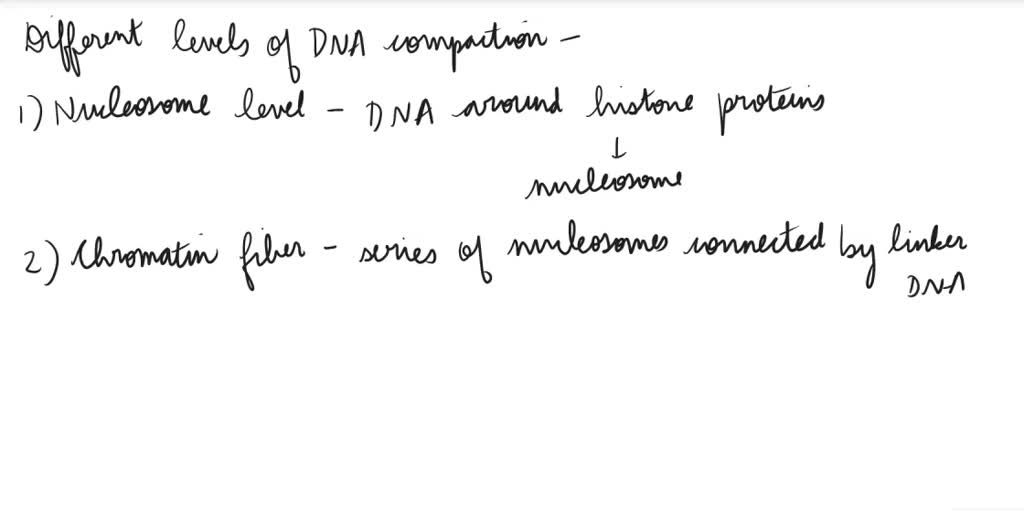 Different levels of DNA compaction -
1) Nucleosome level - DNA around histone proteins
↓
nucleosome
2) Chromatin fiber - series of nucleosomes connected by linker
DNA